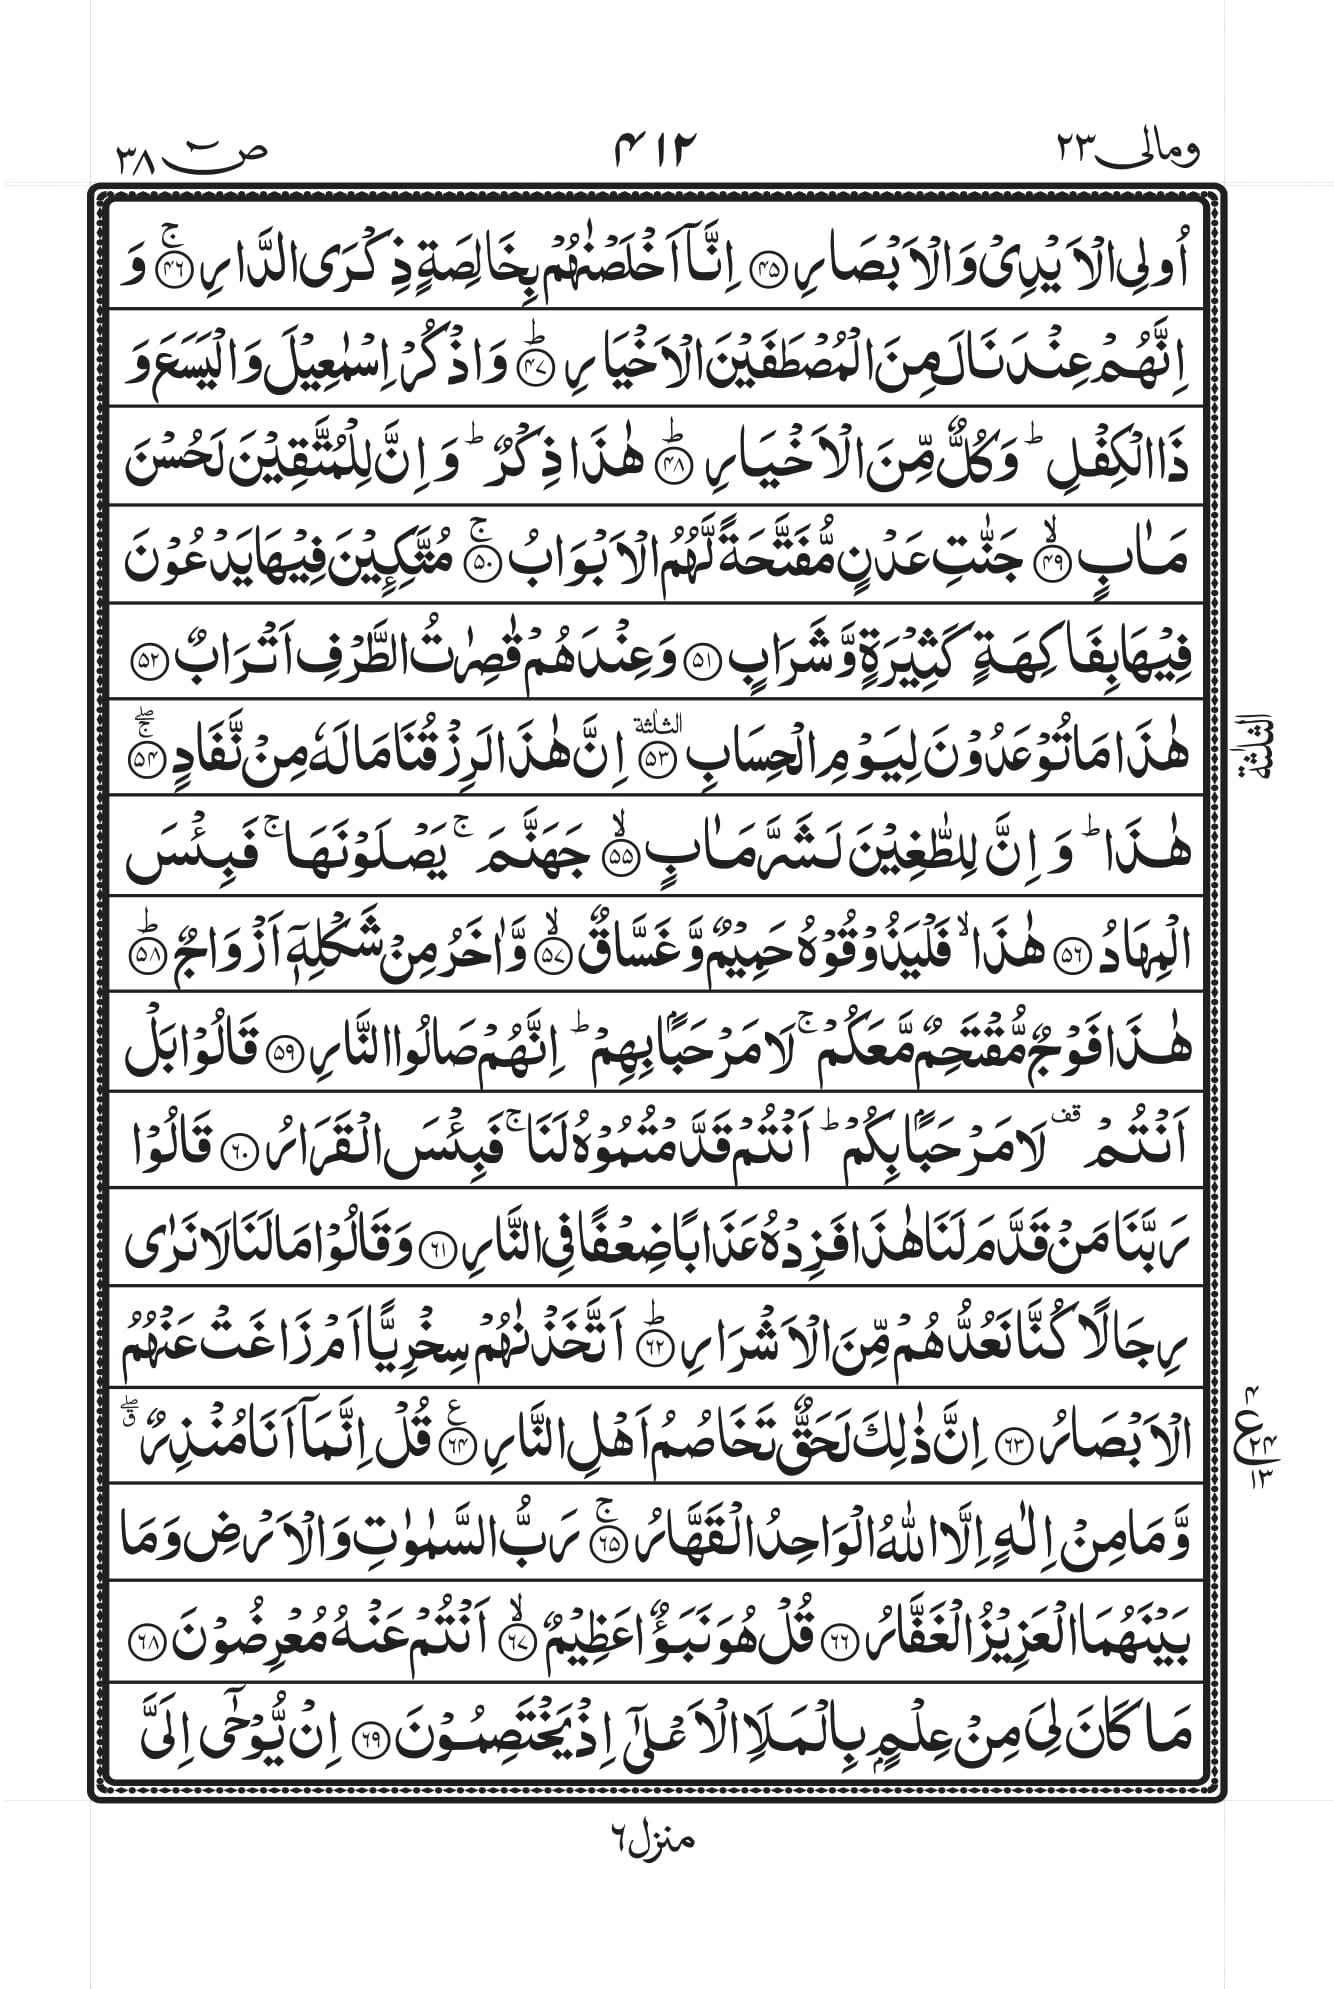 ومالی ٢٣
۴۱۲
صٓ ٣٨
اُولِی الۡاَیۡدِیۡ وَ الۡاَبۡصَارِ ﴿۴۵﴾ اِنَّاۤ اَخۡلَصۡنٰہُمۡ بِخَالِصَۃٍ ذِکۡرَی الدَّارِ ﴿ۚ۴۶﴾ وَ
اِنَّہُمۡ عِنۡدَنَا لَمِنَ الۡمُصۡطَفَیۡنَ الۡاَخۡیَارِ ﴿ؕ۴۷﴾ وَ اذۡکُرۡ اِسۡمٰعِیۡلَ وَ الۡیَسَعَ وَ
ذَا الۡکِفۡلِ ؕ وَ کُلٌّ مِّنَ الۡاَخۡیَارِ ﴿ؕ۴۸﴾ ہٰذَا ذِکۡرٌ ؕ وَ اِنَّ لِلۡمُتَّقِیۡنَ لَحُسۡنَ
مَاٰبٍ ﴿ۙ۴۹﴾ جَنّٰتِ عَدۡنٍ مُّفَتَّحَۃً لَّہُمُ الۡاَبۡوَابُ ﴿ۚ۵۰﴾ مُتَّکِـِٕیۡنَ فِیۡہَا یَدۡعُوۡنَ
فِیۡہَا بِفَاکِہَۃٍ کَثِیۡرَۃٍ وَّ شَرَابٍ ﴿۵۱﴾ وَ عِنۡدَہُمۡ قٰصِرٰتُ الطَّرۡفِ اَتۡرَابٌ ﴿۵۲﴾
ہٰذَا مَا تُوۡعَدُوۡنَ لِیَوۡمِ الۡحِسَابِ ﴿۵۳﴾ الثلٰثة اِنَّ ہٰذَا لَرِزۡقُنَا مَا لَہٗ مِنۡ نَّفَادٍ ﴿ۚۖ۵۴﴾
الثلٰثة
ہٰذَا ؕ وَ اِنَّ لِلطّٰغِیۡنَ لَشَرَّ مَاٰبٍ ﴿ۙ۵۵﴾ جَہَنَّمَ ۚ یَصۡلَوۡنَہَا ۚ فَبِئۡسَ
الۡمِہَادُ ﴿۵۶﴾ ہٰذَا ۙ فَلۡیَذُوۡقُوۡہُ حَمِیۡمٌ وَّ غَسَّاقٌ ﴿ۙ۵۷﴾ وَّ اٰخَرُ مِنۡ شَکۡلِہٖۤ اَزۡوَاجٌ ﴿ؕ۵۸﴾
ہٰذَا فَوۡجٌ مُّقۡتَحِمٌ مَّعَکُمۡ ۚ لَا مَرۡحَبًۢا بِہِمۡ ؕ اِنَّہُمۡ صَالُوا النَّارِ ﴿۵۹﴾ قَالُوۡا بَلۡ
اَنۡتُمۡ ۟ قف لَا مَرۡحَبًۢا بِکُمۡ ؕ اَنۡتُمۡ قَدَّمۡتُمُوۡہُ لَنَا ۚ فَبِئۡسَ الۡقَرَارُ ﴿۶۰﴾ قَالُوۡا
رَبَّنَا مَنۡ قَدَّمَ لَنَا ہٰذَا فَزِدۡہُ عَذَابًا ضِعۡفًا فِی النَّارِ ﴿۶۱﴾ وَ قَالُوۡا مَا لَنَا لَا نَرٰی
رِجَالًا کُنَّا نَعُدُّہُمۡ مِّنَ الۡاَشۡرَارِ ﴿ؕ۶۲﴾ اَتَّخَذۡنٰہُمۡ سِخۡرِیًّا اَمۡ زَاغَتۡ عَنۡہُمُ
الۡاَبۡصَارُ ﴿۶۳﴾ اِنَّ ذٰلِکَ لَحَقٌّ تَخَاصُمُ اَہۡلِ النَّارِ ﴿۶۴﴾ ع قُلۡ اِنَّمَاۤ اَنَا مُنۡذِرٌ ٭ۖ
۴
ع
۲۴
۱۳
وَّ مَا مِنۡ اِلٰہٍ اِلَّا اللّٰہُ الۡوَاحِدُ الۡقَہَّارُ ﴿ۚ۶۵﴾ رَبُّ السَّمٰوٰتِ وَ الۡاَرۡضِ وَ مَا
بَیۡنَہُمَا الۡعَزِیۡزُ الۡغَفَّارُ ﴿۶۶﴾ قُلۡ ہُوَ نَبَؤٌا عَظِیۡمٌ ﴿ۙ۶۷﴾ اَنۡتُمۡ عَنۡہُ مُعۡرِضُوۡنَ ﴿۶۸﴾
مَا کَانَ لِیَ مِنۡ عِلۡمٍۭ بِالۡمَلَاِ الۡاَعۡلٰۤی اِذۡ یَخۡتَصِمُوۡنَ ﴿۶۹﴾ اِنۡ یُّوۡحٰۤی اِلَیَّ
منزل ۶